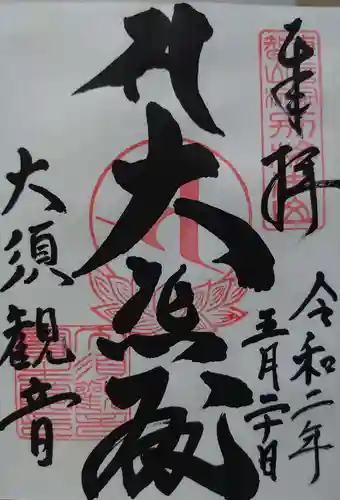 奉拝
令和二年
五月二十日
大悲殿
大須観音